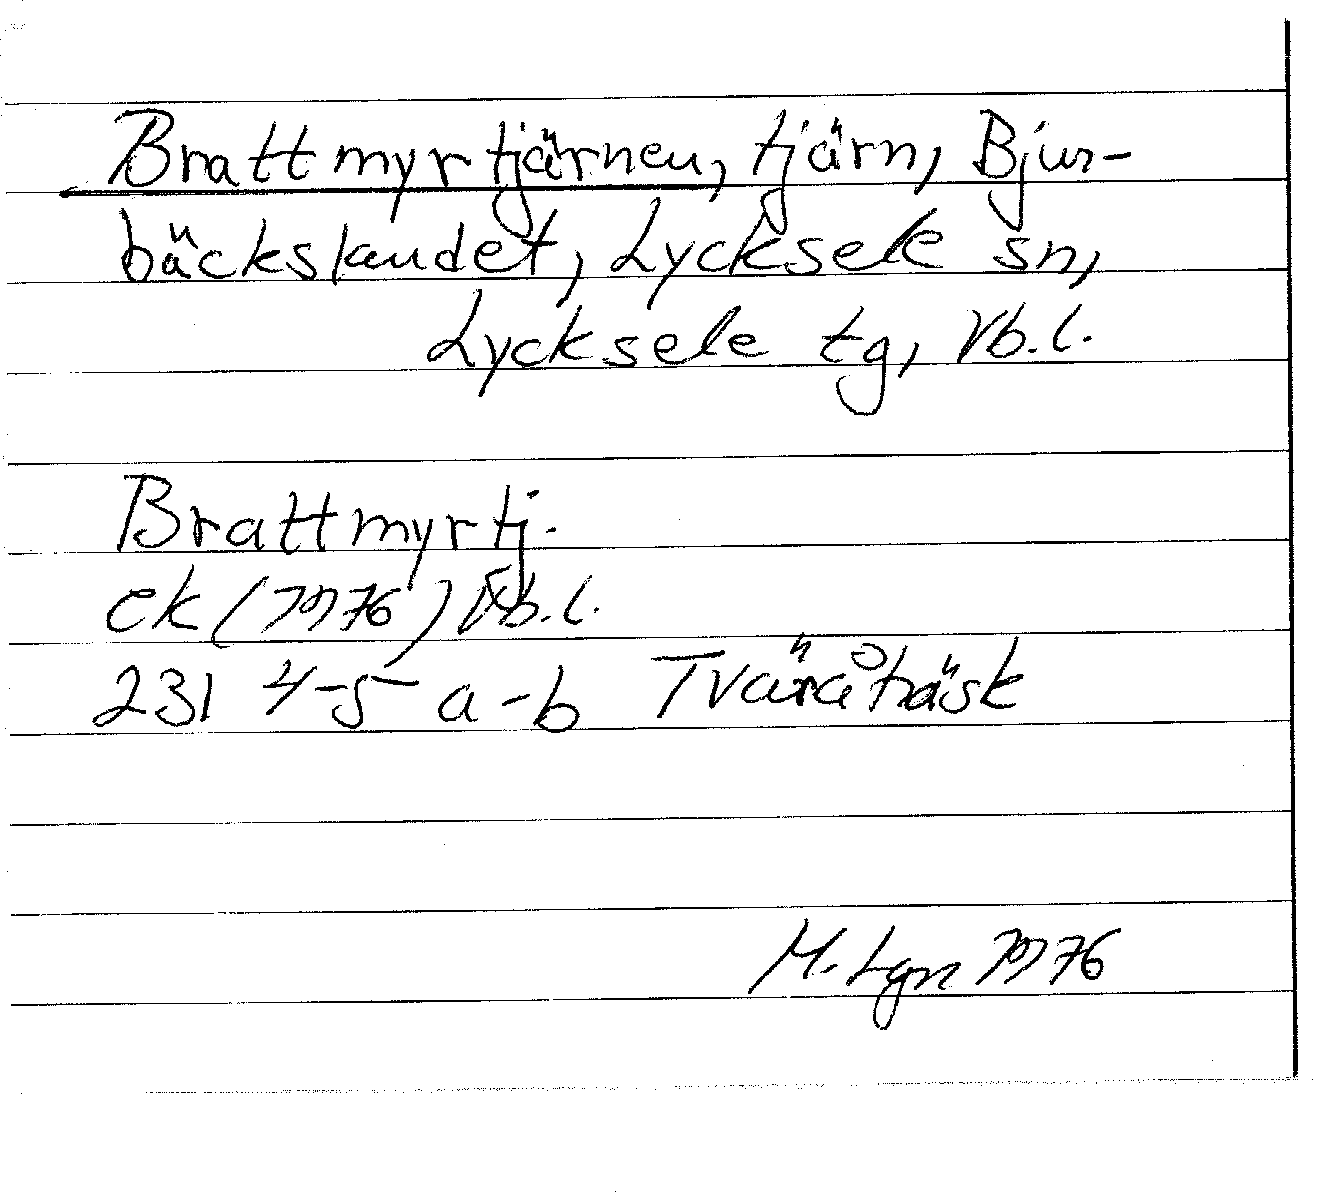 Brattmyrtjärnen, tjärn, Bjur-
bäckslandet, Lycksele sn,
Lycksele tg, Vb.l.
Brattmyrtj.
ek (1976) Vb.l.
231 4-5 a-b Tväråträsk
M. Lgn 1976